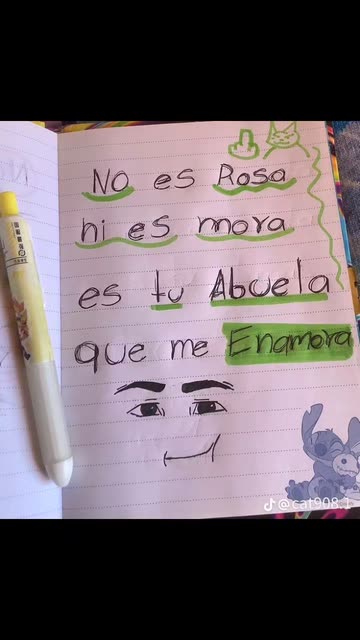 No es Rosa
ni es mora
es tu Abuela
que me Enamora
@cat908.1